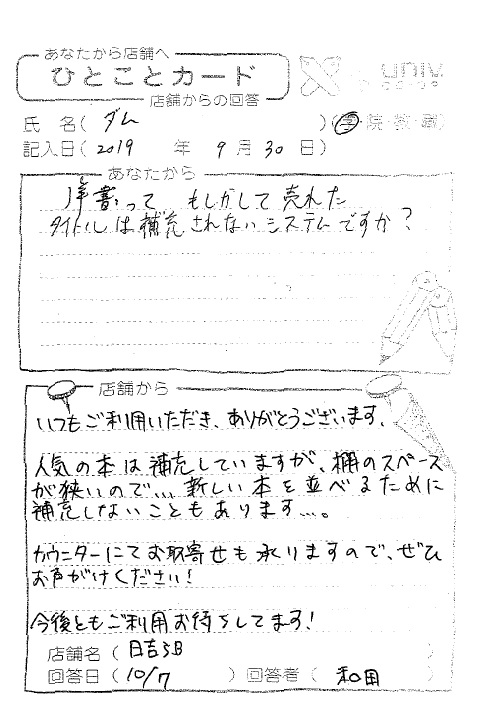 あなたから店舗へ
ひとことカード
店舗からの回答
univ.
co-op
氏 名( ダム )(学・院・教・職)
記入日( 2019 年 9 月 30 日)
あなたから
洋書って もしかして 売れた
タイトルは補充されないシステムですか?
店舗から
いつもご利用いただき、ありがとうございます。
人気の本は補充していますが、棚のスペース
が狭いので... 新しい本を並べるために
補充しないこともあります...。
カウンターにてお取寄せも承りますので、ぜひ
お声がけください!
今後ともご利用お待ちしてます!
店舗名( 日吉SB )
回答日( 10/7 ) 回答者( 和田 )